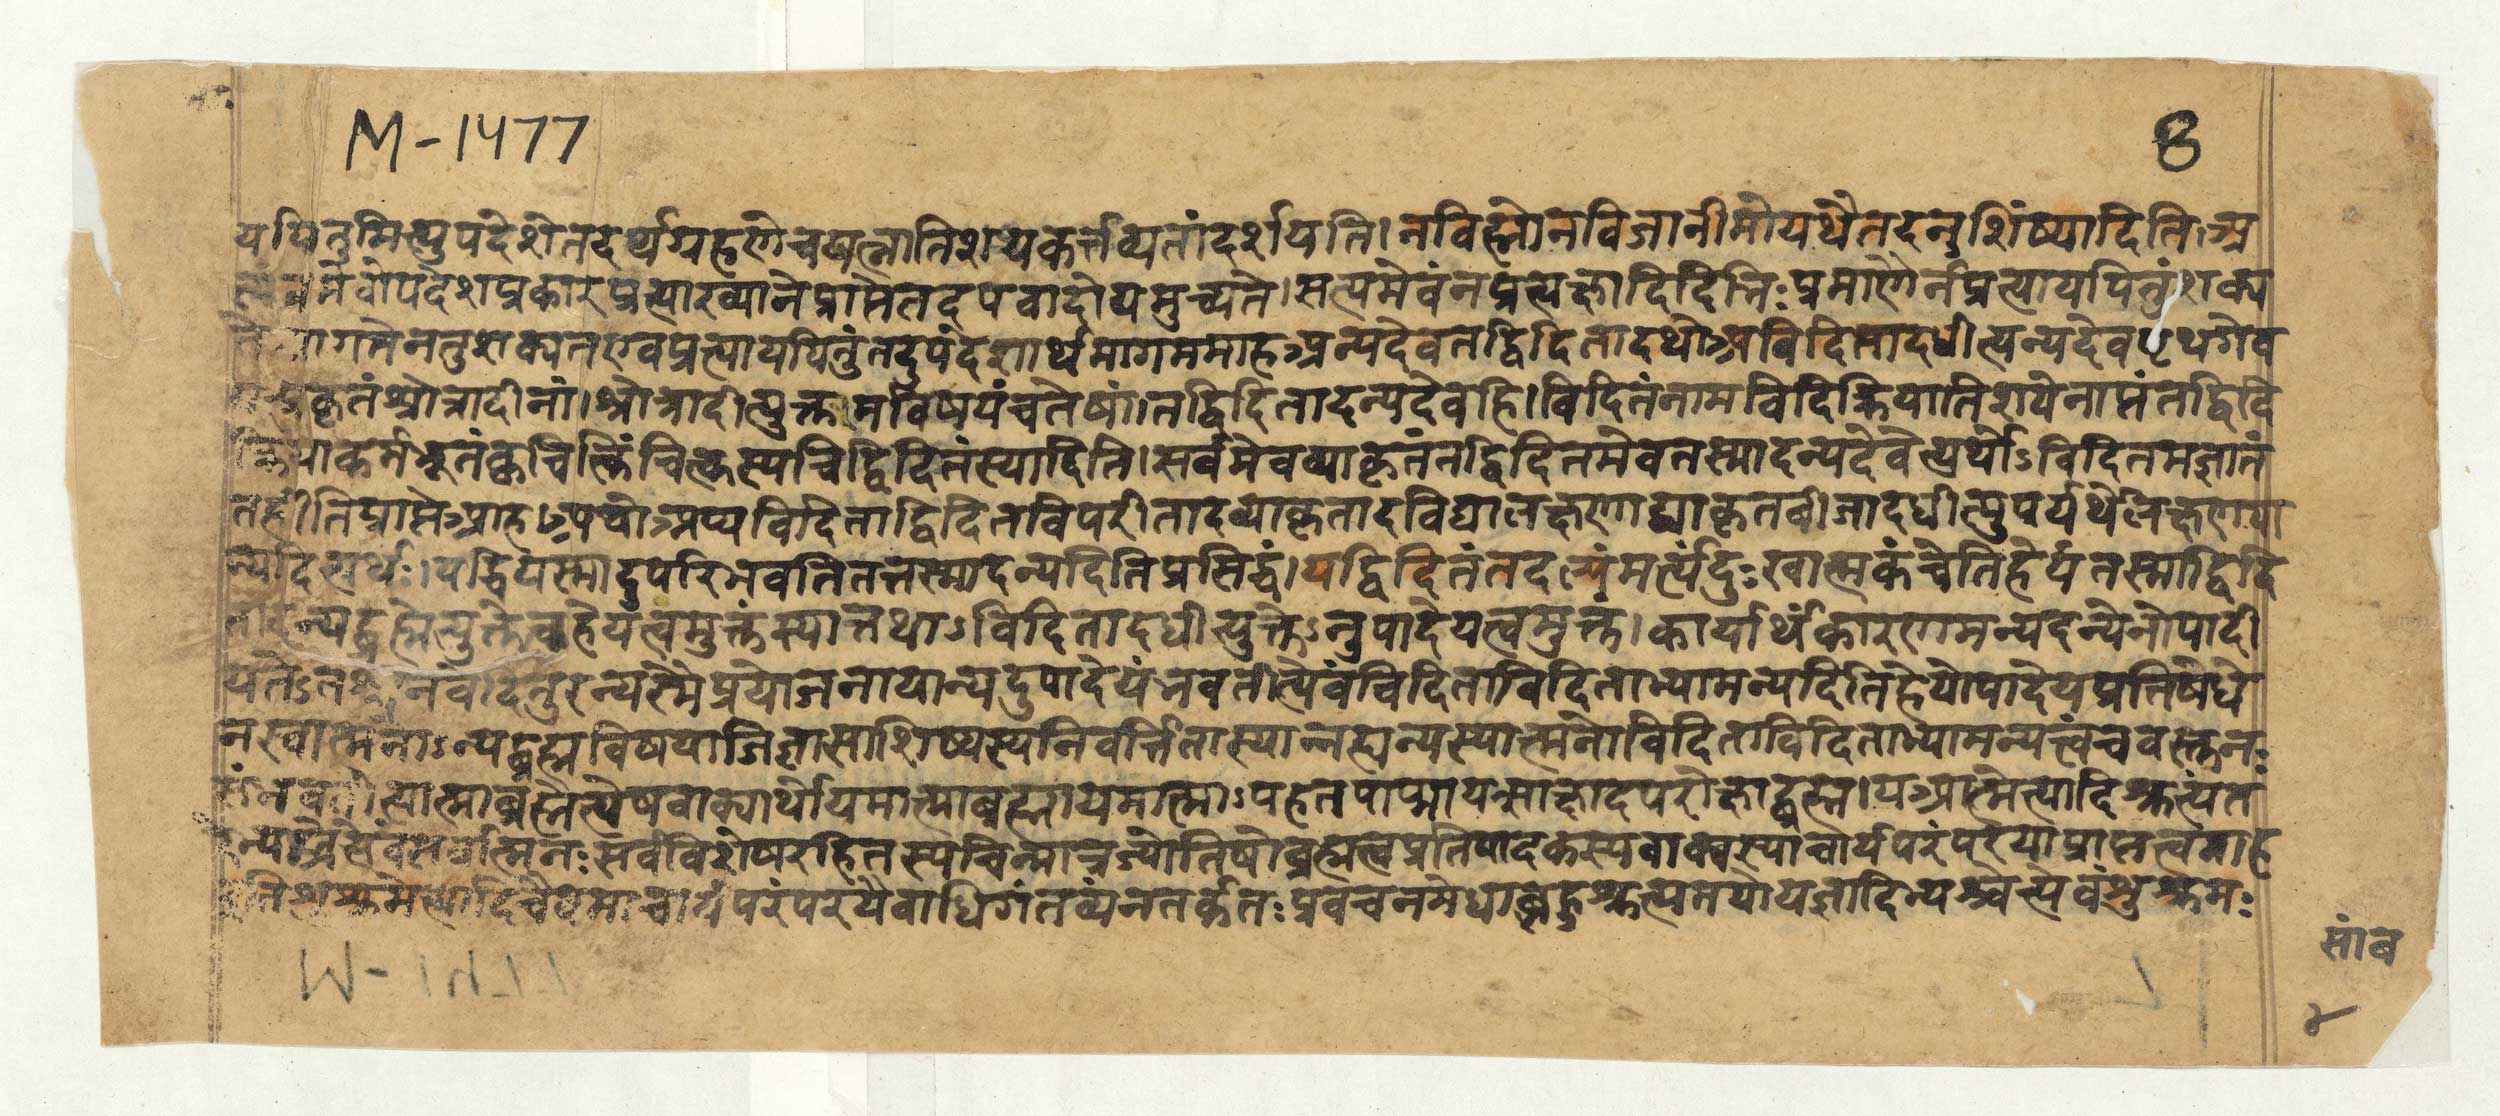 M-1477
8
ययितुमित्युपदेशेतदर्थग्रहणेचयत्नातिशयकर्त्तव्यतांदर्शयति।नविद्मोनविजानीमोयथैतदनुशिंष्यादिति।अ
मेवोपदेशप्रकारप्रत्याख्यानेप्राप्तेतदपवादोयमुच्यते।सत्यमेवंनप्रत्यक्षादिदिभिःप्रमाणैर्नप्रत्याययितुंशक्य
गमेनतुशक्यतएवप्रत्याययितुंतदुपदेशार्थमागममाहअन्यदेवतद्विदितादथोअविदितादधीत्यन्यदेवपृथगेव
प्रकृतंश्रोत्रादीनां।श्रोत्रादीत्युक्तमविषयंचतेषां।तद्विदितादन्यदेवहि।विदितंनामविदिक्रियातिशयेनाप्तंतद्विदि
क्रियाकर्मभूतंक्वचित्किंचित्कस्यचिद्विदितंस्यादिति।सर्वमेवव्याकृतंतद्विदितमेवतस्मादन्यदेवेत्यर्थोऽविदितमज्ञातं
तर्हीतिप्राप्तेआहअथोअप्यविदिताद्विदितविपरीतादव्याकृतादविद्यालक्षणाद्व्याकृतबीजादधीत्युपर्यर्थेलक्षणया
न्यदित्यर्थः।यद्धियस्मादुपरिभवतितत्तस्मादन्यदितिप्रसिद्धं।यद्विदितंतदल्पंमर्त्यंदुःखात्मकंचेतिहेयंतस्माद्विदि
तादन्यद्ब्रह्मेत्युक्तेत्वहेयत्वमुक्तंस्यात्तथाऽविदितादधीत्युक्तेऽनुपादेयत्वमुक्तं।कार्यार्थंकारणमन्यदन्येनोपादी
यतेऽतश्चनवेदितुरन्यस्मैप्रयोजनायान्यदुपादेयंभवतीत्येवंविदिताविदिताभ्यामन्यदितिहेयोपादेयप्रतिषेधे
नस्वात्मनोऽन्यद्ब्रह्मविषयाजिज्ञासाशिष्यस्यनिवर्त्तितास्यान्नह्यन्यस्यात्मनोविदिताविदिताभ्यामन्यत्वंचवस्तुनः
संभवतीत्यात्माब्रह्मेत्येषवाक्यार्थोयमात्माब्रह्मायमात्माऽपहतपाप्मायत्साक्षादपरोक्षाद्ब्रह्म।यआत्मेत्यादिश्रुत्यंत
सर्वात्मनःसर्वविशेषरहितस्यचिन्मात्रज्योतिषोब्रह्मत्वप्रतिपादकस्यवाक्यस्याचार्यपरंपरयाप्राप्तत्वमाह
इतिशुश्रुमेत्यादिचैवमाचार्यपरंपरयैवाधिगंतव्यंनतर्कतःप्रवचनमेधाबहुश्रुततपोयज्ञादिभ्यश्चेत्येवंशुश्रुमः
सांब
४
M-1477